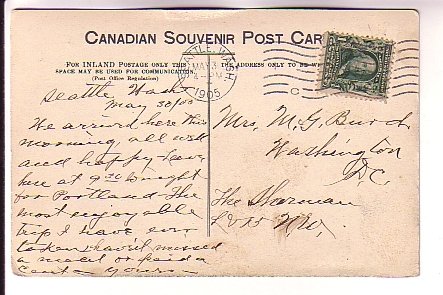 CANADIAN SOUVENIR POST CAR
FOR INLAND POSTAGE ONLY THIS
SPACE MAY BE USED FOR COMMUNICATION.
(Post Office Regulation)
THE ADDRESS ONLY TO BE
SEATTLE, WASH.
MAY 3
4-PM
1905
Seattle Wash
May 30/05
We arrived here this
morning, all well
and happy leave
here at 9 tonight
for Portland The
most enjoyable
trip I have ever
taken havent missed
a meal or paid a
cent yours
Mrs. M. G. Burch
Washington
D.C.
The Sherman
L & 15 N.W.